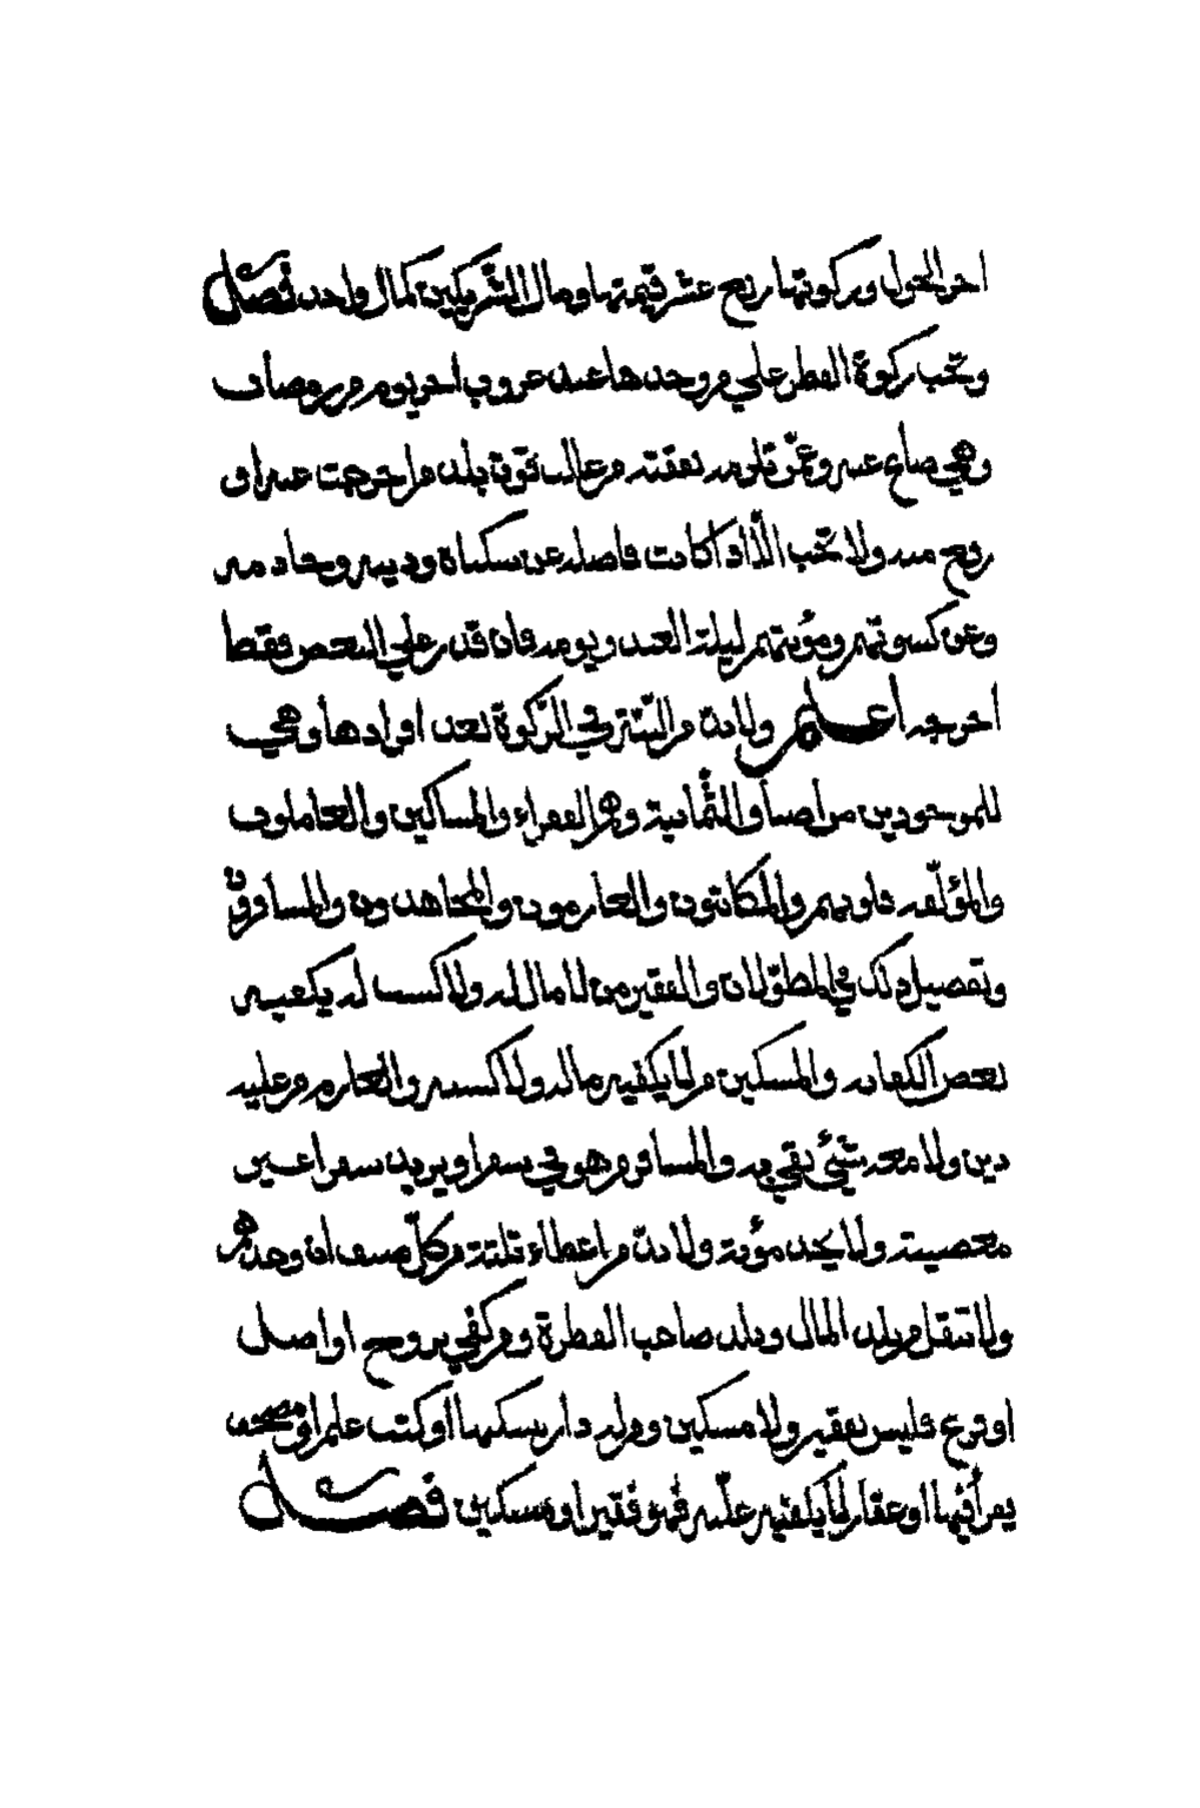 اخر الحول وزكوتها ربع عشر قيمتها ومال الشريكين كمال واحد فصل
وتجب زكوة الفطر على من وجدها عند غروب اخر يوم من رمضان
وهي صاع عنه وعمن تلزمه نفقته من غالب قوة بلد من اخرجت عنه او
ربيع منه ولا تجب الا اذا كانت فاضله عن مسكنه ودينه وخادمه
وعن كسوتهم ومؤنتهم ليلة العيد ويومه فان قدر علي البعض فقط
اخرجه اعلم ولا بد من النية في الزكوة بعد افرادها وهي
للموجودين من اصناف الثمانية وهم الفقراء والمساكين والعاملون
والمؤلفه قلوبهم والمكاتبون والغارمون والمجاهدون والمسافرون
وتفصيل ذلك في المطولات والفقير من لا مال له ولا كسب له يكفيه
بعض الكفايه والمسكين من لا يكفيه ماله ولا كسبه والغارم من عليه
دين ولا معه شيئ يقي به والمسافر من هو في سفر او يريد سفرا غير
معصية ولا يجد مؤنة ولا بد من اعطاء ثلثة من كل صنف ان وجدهم
ولا تنقل من بلد المال وبلد صاحب الفطرة ومن كفي بزوج او اصل
او فرع فليس بفقير ولا مسكين ومن له دار يسكنها او كتب علم او مصحف
يقرأ فيها او عقار لا يكفيه غلته فهو فقير او مسكين فصل